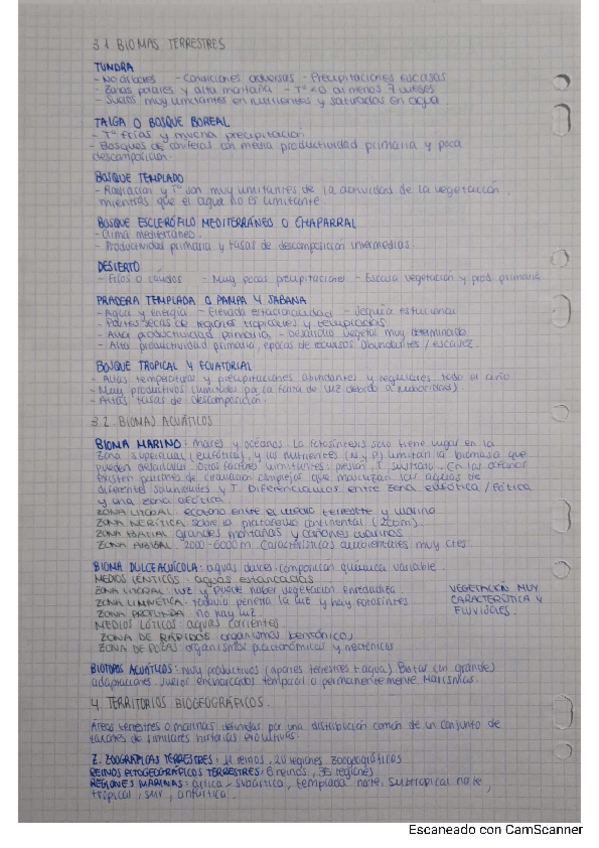 3.1 BIOMAS TERRESTRES
TUNDRA
- No árboles - Condiciones adversas - Precipitaciones escasas
- Zonas polares y alta montaña - Tº < 0 al menos 7 meses
- Suelos muy limitantes en nutrientes y saturados en agua.
TAIGA O BOSQUE BOREAL
- Tº frías y mucha precipitación.
- Bosques de coníferas con media productividad primaria y poca
descomposición.
BOSQUE TEMPLADO
- Radiación y Tº son muy limitantes de la actividad de la vegetación,
mientras que el agua no es limitante.
BOSQUE ESCLERÓFILO MEDITERRÁNEO O CHAPARRAL
- Clima mediterráneo.
- Productividad primaria y tasas de descomposición intermedias.
DESIERTO
- Fríos o cálidos - Muy pocas precipitaciones - Escasa vegetación y prod. primaria.
PRADERA TEMPLADA O PAMPA Y SABANA
- Agua y energía - Elevada estacionalidad - Sequía estacional
- Partes secas de regiones tropicales y templadas
- Alta productividad primaria - Desarrollo vegetal muy determinado
- Alta productividad primaria, épocas de recursos abundantes / escasez.
BOSQUE TROPICAL Y ECUATORIAL
- Altas temperaturas y precipitaciones abundantes y regulares todo el año
- Muy productivos (limitados por la falta de luz debido a
- Altas tasas de descomposición.
3.2. BIOMAS ACUÁTICOS
BIOMA MARINO: mares y océanos. La fotosíntesis solo tiene lugar en la
zona superficial (eufótica), y los nutrientes (N y P) limitan la biomasa que
pueden desarrollar. Otros factores limitantes: presión, T, sustrato. En los océanos
existen patrones de circulación complejos que movilizan las aguas de
diferentes salinidades y T. Diferenciamos entre zona eufótica / fótica
y una zona afótica.
ZONA LITORAL: ecotono entre el medio terrestre y marino
ZONA NERÍTICA: sobre la plataforma continental (200m).
ZONA BATIAL: grandes montañas y cañones marinos
ZONA ABISAL: 2000-6000m. Características ambientales muy ctes.
BIOMA DULCEACUÍCOLA: aguas dulces. Composición química variable.
MEDIOS LÉNTICOS: aguas estancadas
ZONA LITORAL: luz y puede haber vegetación enraizada.
ZONA LIMNÉTICA: todavía penetra la luz y hay fotosíntesis
ZONA PROFUNDA: no hay luz.
VEGETACIÓN MUY
CARACTERÍSTICA Y
FLUVIALES.
MEDIOS LÓTICOS: aguas corrientes
ZONA DE RÁPIDOS: organismos bentónicos
ZONA DE POZAS: organismos planctónicos y nectónicos
BIOTOPOS ACUÁTICOS: muy productivos (aportes terrestres + agua). Biotas con grandes
adaptaciones. Suelos encharcados temporal o permanentemente. Marismas.
4. TERRITORIOS BIOGEOGRÁFICOS.
Áreas terrestres o marinas definidas por una distribución común de un conjunto de
taxones de similares historias evolutivas.
Z. ZOOGRÁFICAS TERRESTRES: 11 reinos, 20 regiones zoogeográficas
REINOS FITOGEOGRÁFICOS TERRESTRES: 6 reinos, 35 regiones
REGIONES MARINAS: ártica, subártica, templada norte, subtropical norte,
tropical, sur, antártica.
Escaneado con CamScanner